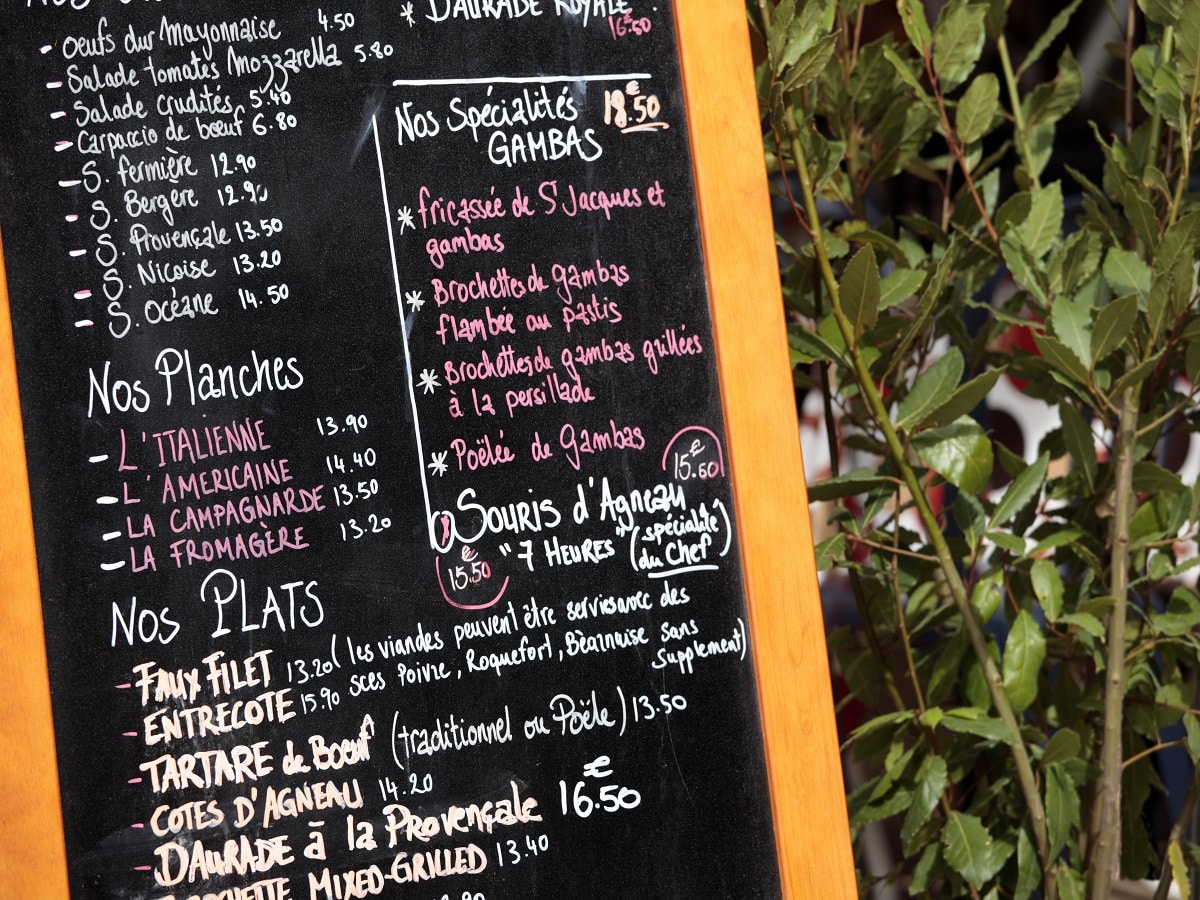 - Oeufs dur Mayonnaise 4.50
- Salade tomates Mozzarella 5.80
- Salade crudités 5.40
- Carpaccio de boeuf 6.80
- S. fermière 12.90
- S. Bergère 12.90
- S. Provençale 13.50
- S. Niçoise 13.20
- S. Océane 14.50
Nos Planches
- L'ITALIENNE 13.90
- L'AMERICAINE 14.40
- LA CAMPAGNARDE 13.50
- LA FROMAGÈRE 13.20
* DAURADE ROYALE
16.50€
Nos Spécialités 18.50€
GAMBAS
* fricassée de S Jacques et
gambas
* Brochettes de gambas
flambée au pastis
* Brochettes de gambas grillées
à la persillade
* Poëlée de Gambas
15.60€
Souris d'Agneau
"7 HEURES" (spécialité
du Chef)
15.50€
Nos PLATS
- FAUX FILET 13.20 (les viandes peuvent être servies avec des
- ENTRECOTE 15.90 sces Poivre, Roquefort, Béarnaise sans
supplement)
- TARTARE de Boeuf (traditionnel ou Poële) 13.50
- COTES D'AGNEAU 14.20
- DAURADE à la Provençale 16.50€
MIXED-GRILLED 13.40